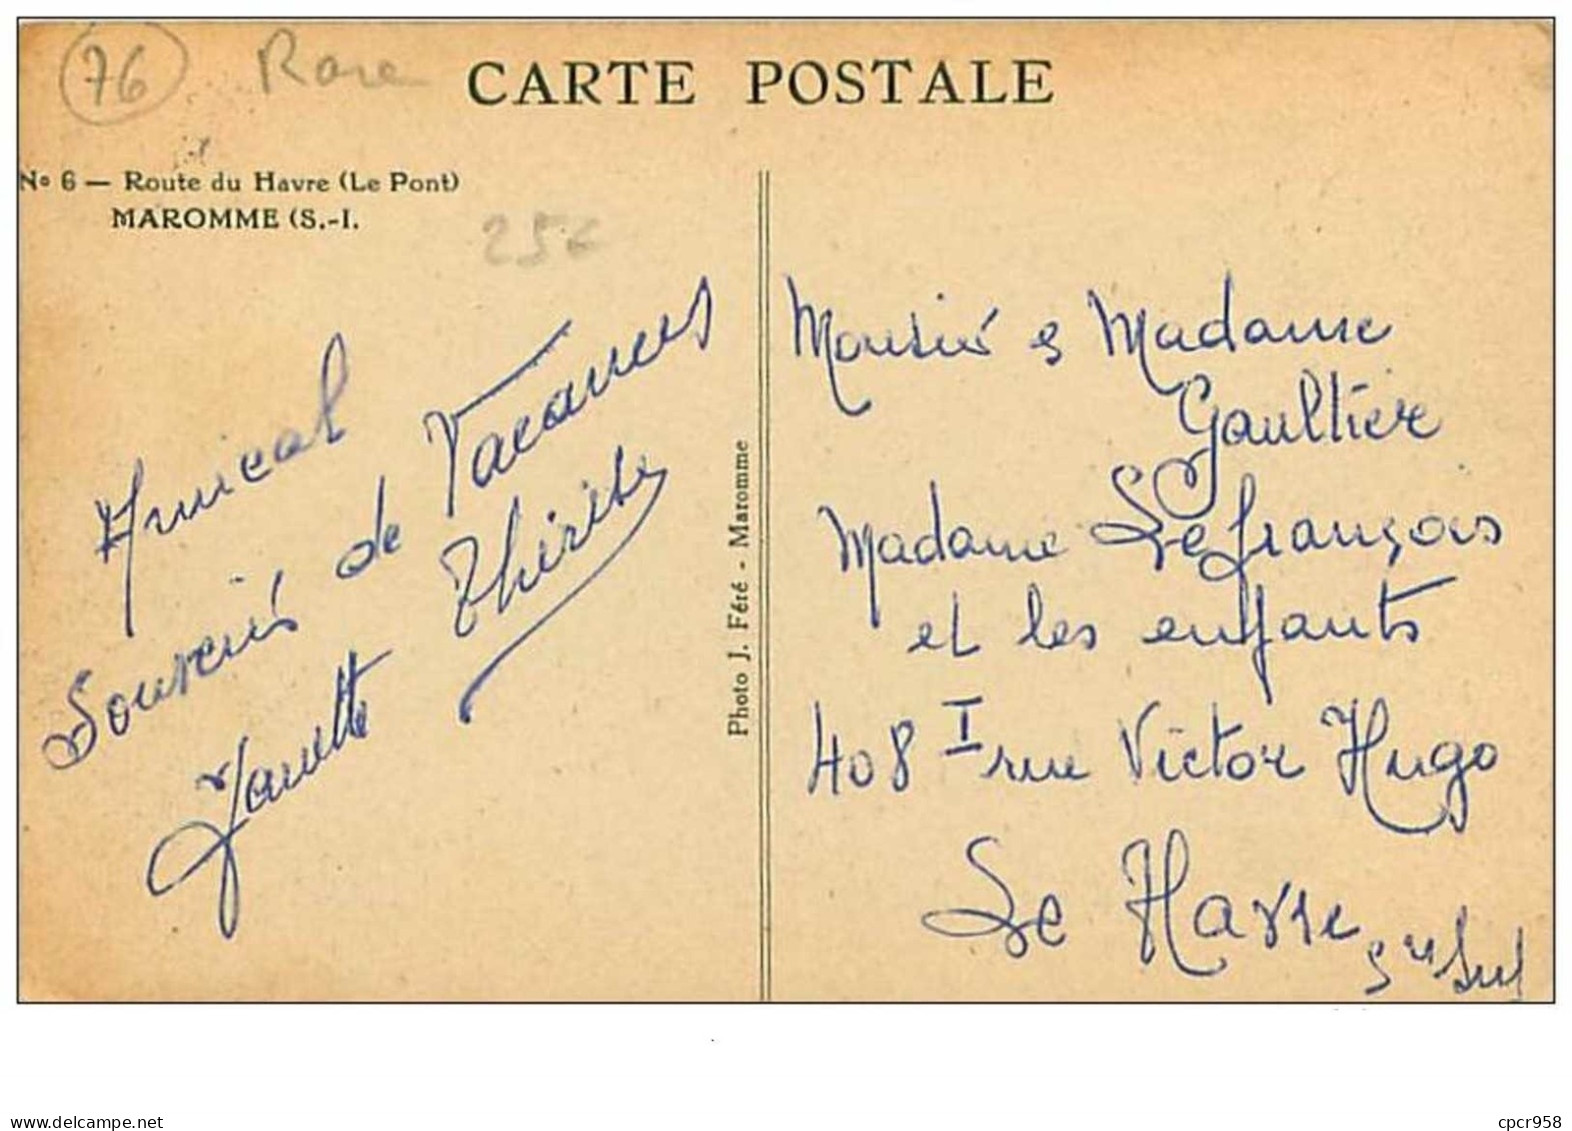 76 Rare
CARTE POSTALE
No 6 — Route du Havre (Le Pont)
MAROMME (S.-I.
25€
Amical
Souvenirs de Vacances
Janette
Photo J. Fété - Maromme
Monsieur & Madame
Gaultier
Madame Lefrançois
et les enfants
408 I rue Victor Hugo
Le Havre
www.delcampe.net
cpcr958